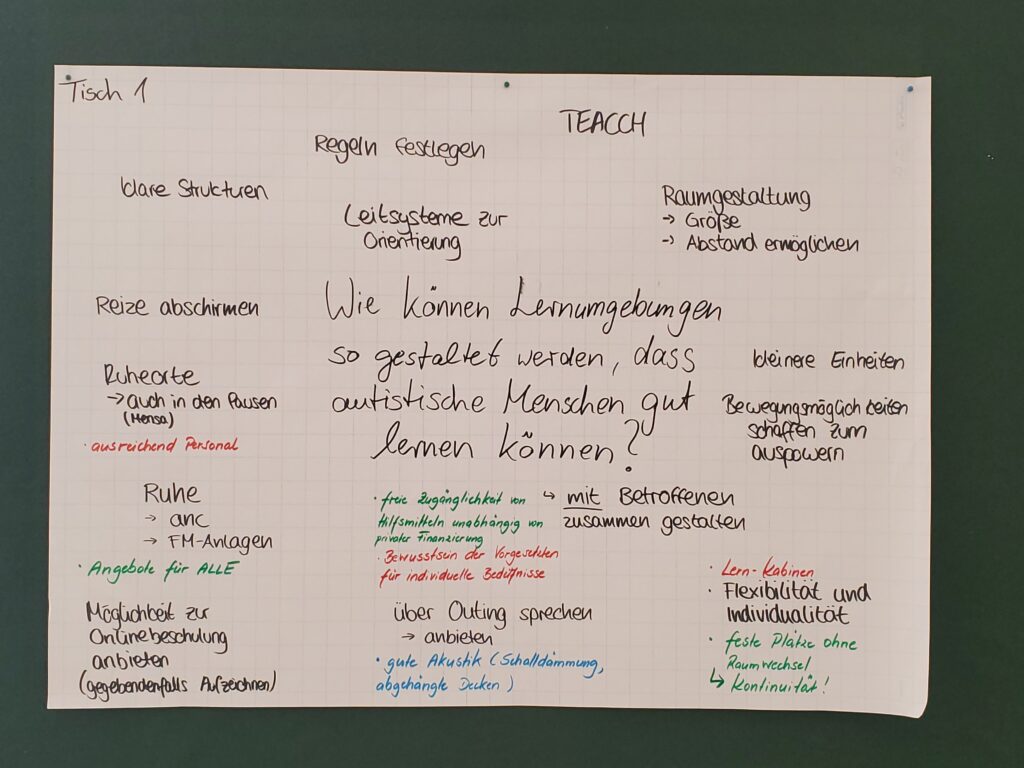 Tisch 1
TEACCH
Regeln festlegen
klare Strukturen
Leitsysteme zur
Orientierung
Raumgestaltung
→ Größe
→ Abstand ermöglichen
Reize abschirmen
Wie können Lernumgebungen
so gestaltet werden, dass
autistische Menschen gut
lernen können?
Ruheorte
→ auch in den Pausen
(Mensa)
· ausreichend Personal
kleinere Einheiten
Bewegungsmöglichkeiten
schaffen zum
auspowern
Ruhe
→ anc
→ FM-Anlagen
· Angebote für ALLE
· freie Zugänglichkeit von
Hilfsmitteln unabhängig von
privater Finanzierung
· Bewusstsein der Vorgesetzten
für individuelle Bedüfnisse
↳ mit Betroffenen
zusammen gestalten
Möglichkeit zur
Onlinebeschulung
anbieten
(gegebendenfalls Aufzeichnen)
über Outing sprechen
→ anbieten
· gute Akustik (Schalldämmung,
abgehängte Decken)
· Lern-Kabinen
· Flexibilität und
Individualität
· feste Plätze ohne
Raumwechsel
↳ Kontinuität!